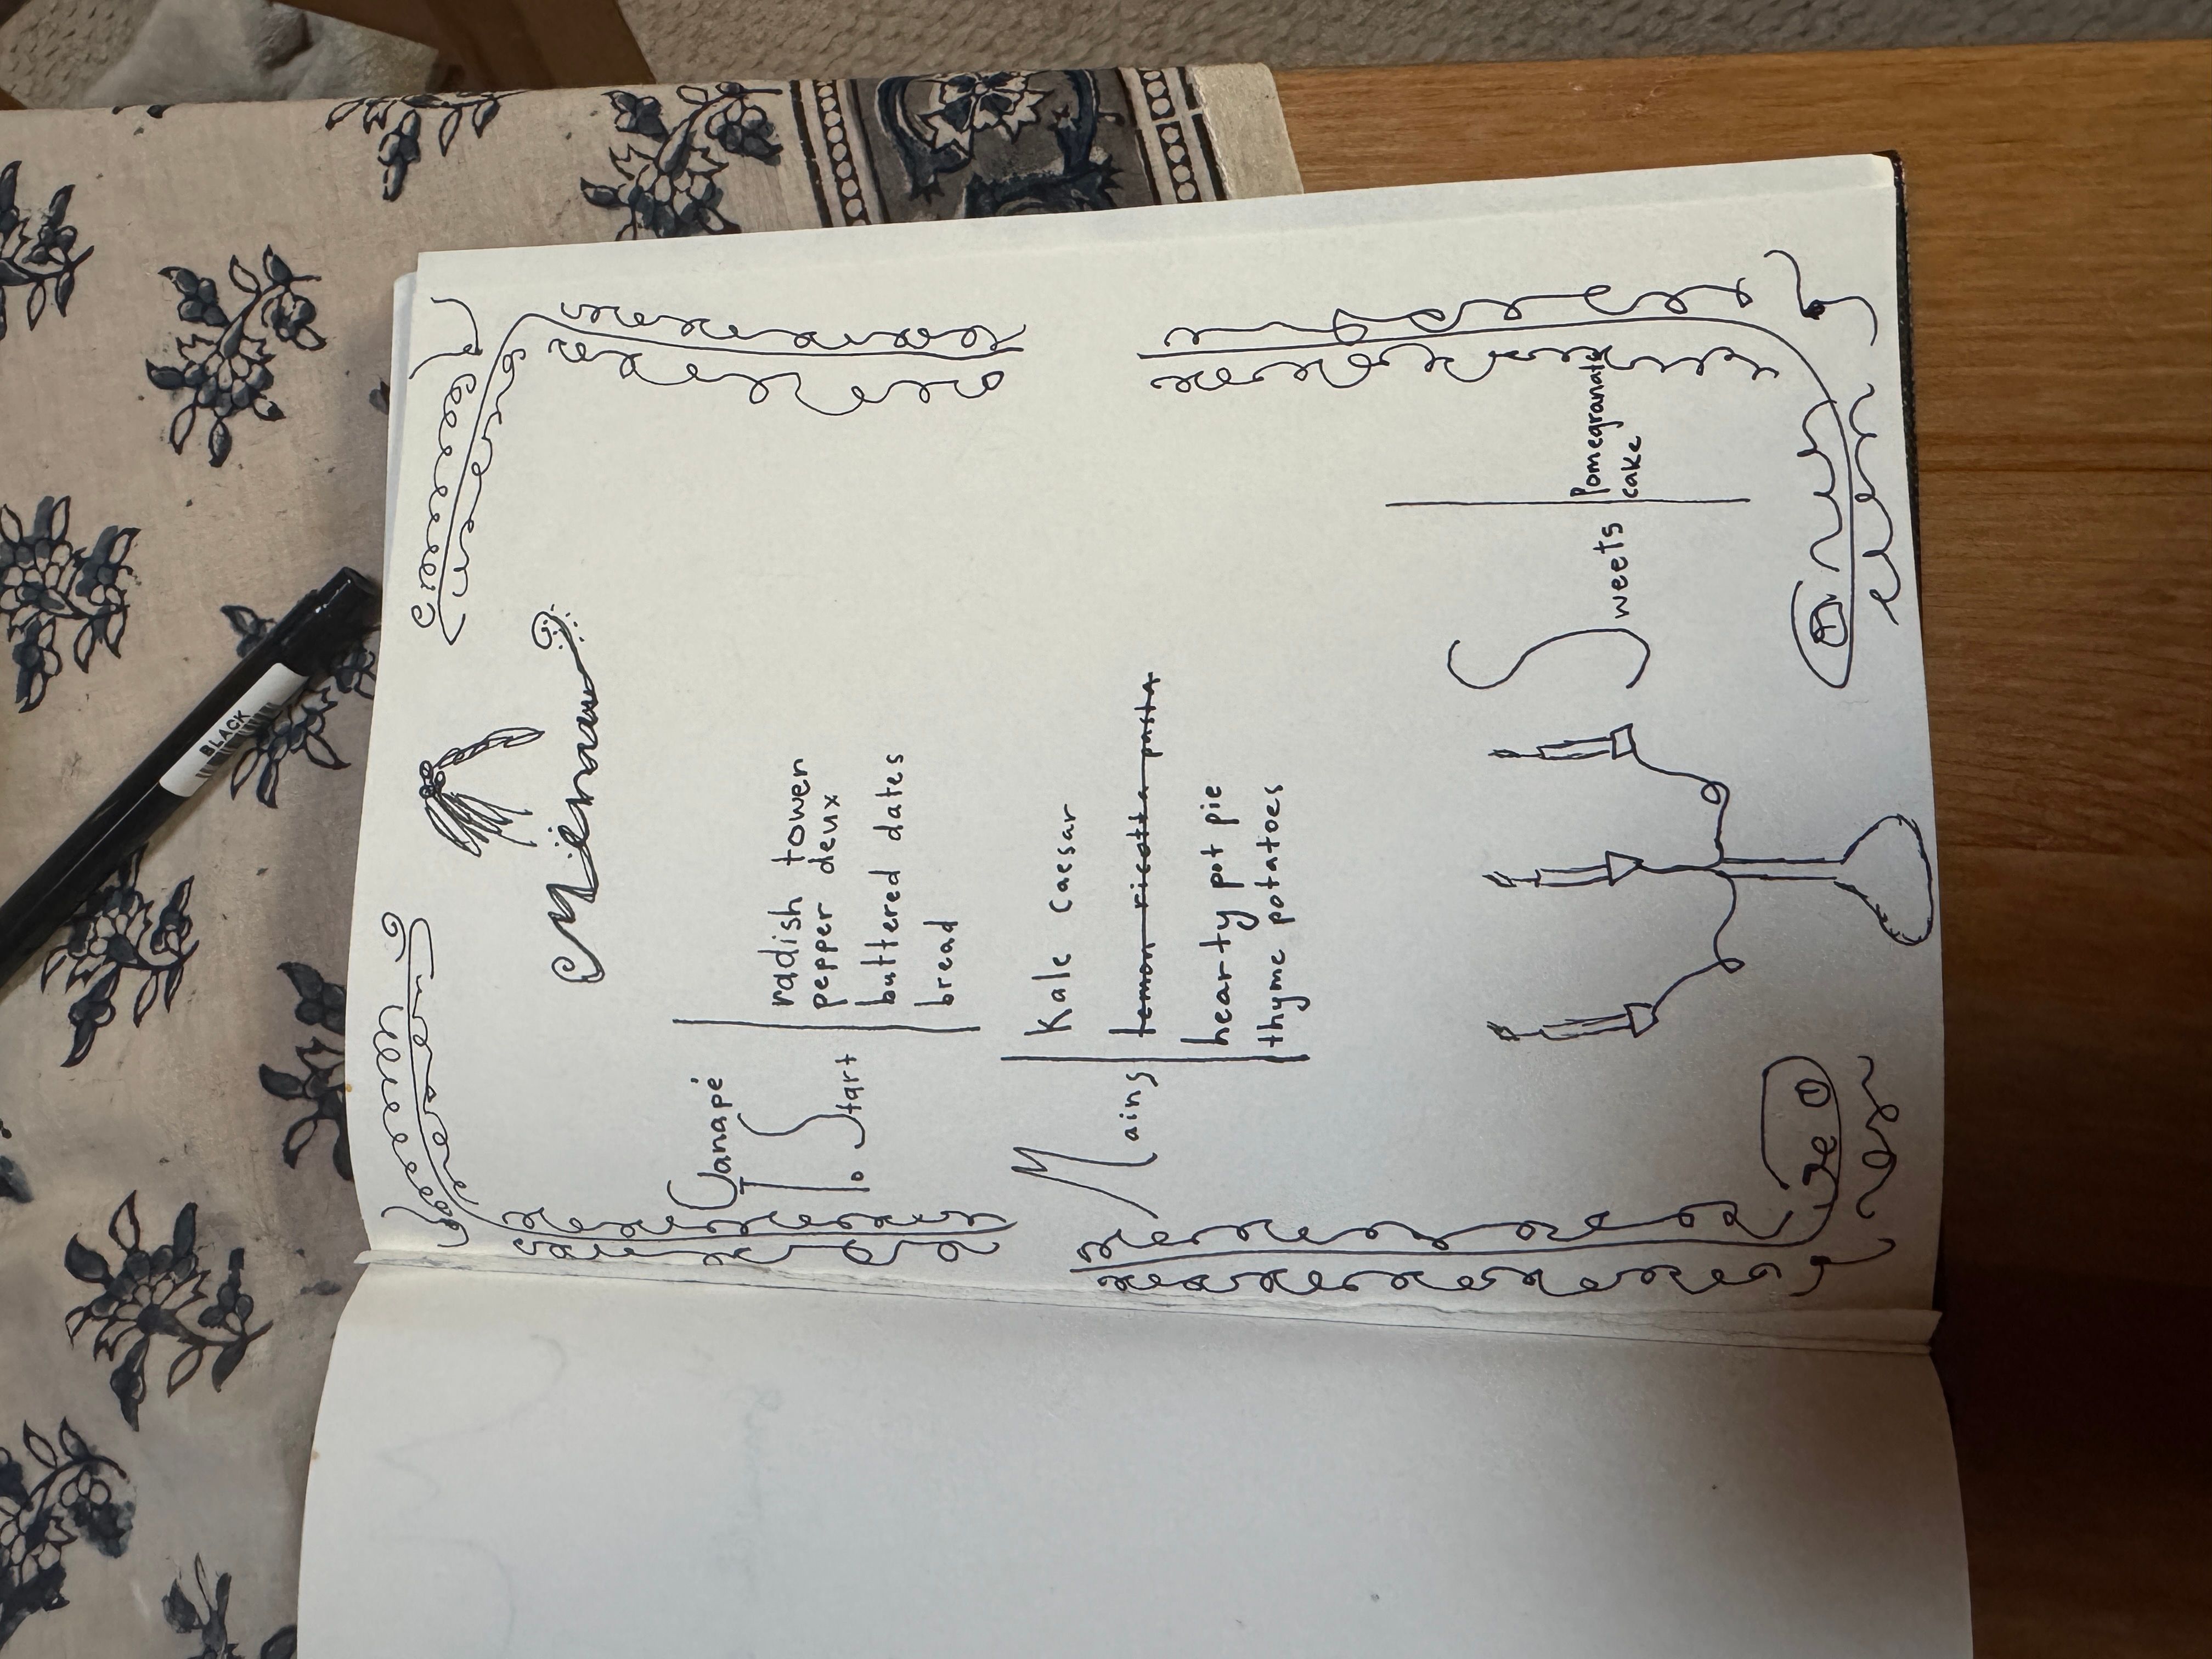 Menu
Canapé
To Start
radish tower
pepper deux
buttered dates
bread
Mains
Kale caesar
lemon ricotta pasta
hearty pot pie
thyme potatoes
Sweets
Pomegranate
cake
BLACK